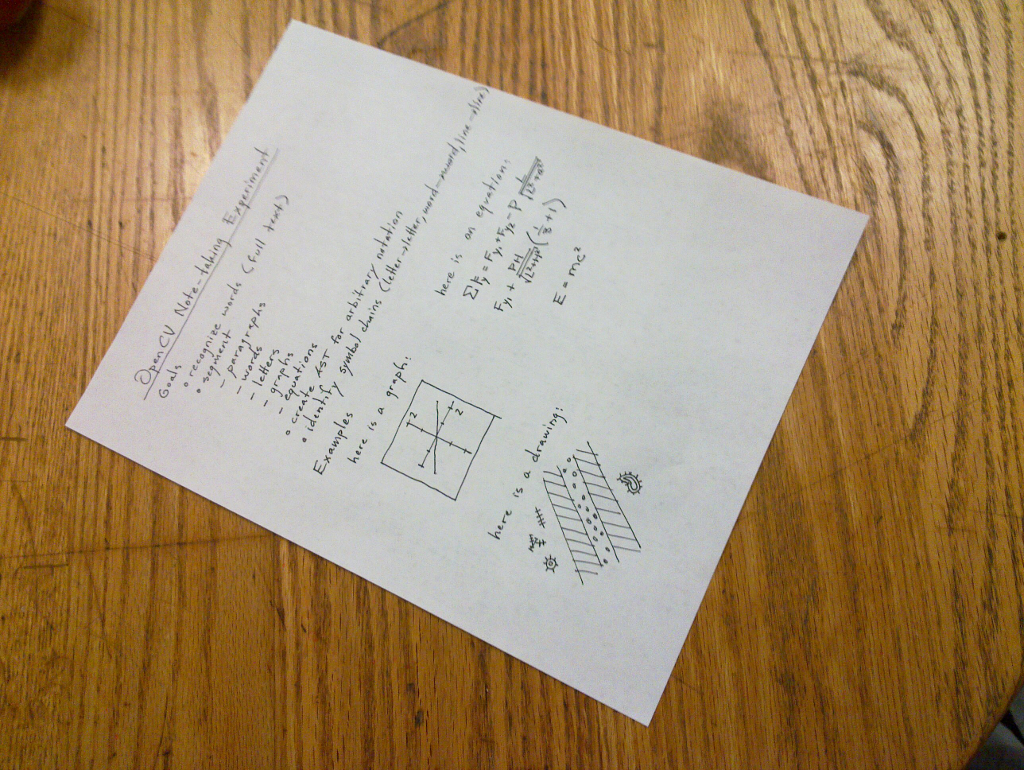 OpenCV Note-taking Experiment
Goals
o recognize words (full text)
o segment
- paragraphs
- words
- letters
- graphs
- equations
o create AST for arbitrary notation
o identify symbol chains (letter→letter, word→word, line→line)
Examples
here is a graph:
2
2
here is an equation:
ΣFy = Fy1 + Fy2 - P
Fy1 + PH/√(L²+H²) (1/8 + 1)
E = mc²
here is a drawing: